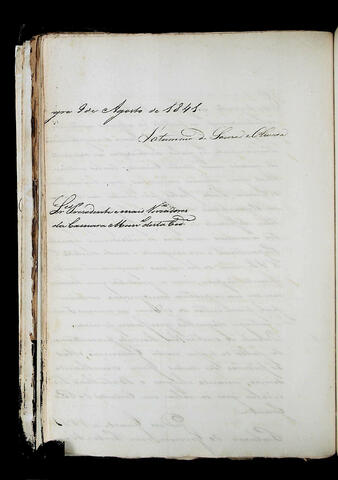 gre 9 de Agosto de 1841.
Saturnino de Souza e Oliveira
Sres Presidente e mais Vereadores
da Camara Munal desta Cide